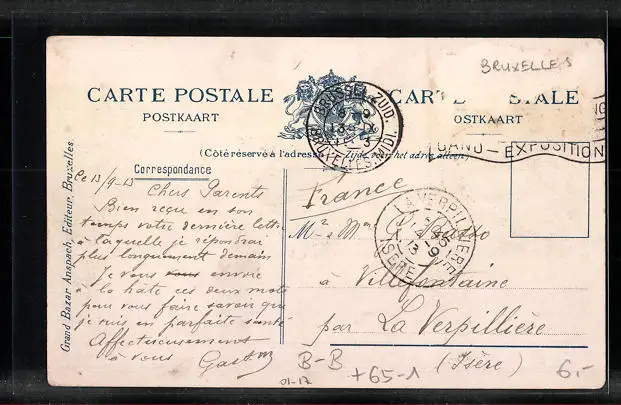 BRUXELLES
CARTE POSTALE
POSTKAART
CARTE POSTALE
POSTKAART
BRUSSEL-ZUID.
BRUXELLES-MIDI.
GAND - EXPOSITION
(Côté réservé à l'adresse) Zijde voor het adres alleen)
Grand Bazar Anspach, Editeur, Bruxelles.
Correspondance
Ce 13/9-13
Chers Parents
Bien reçu en son
temps votre dernière lettre
à laquelle je répondrai
plus longuement demain
Je vous envoie
à la hâte ces deux mots
pour vous faire savoir que
je suis en parfaite santé
Affectueusement
à vous Gaston
France
LA VERPILLIERE
ISERE
Mr & Mme
à Villefontaine
par La Verpillière
(Isère)
B-B
01-17
+65-1
6.-